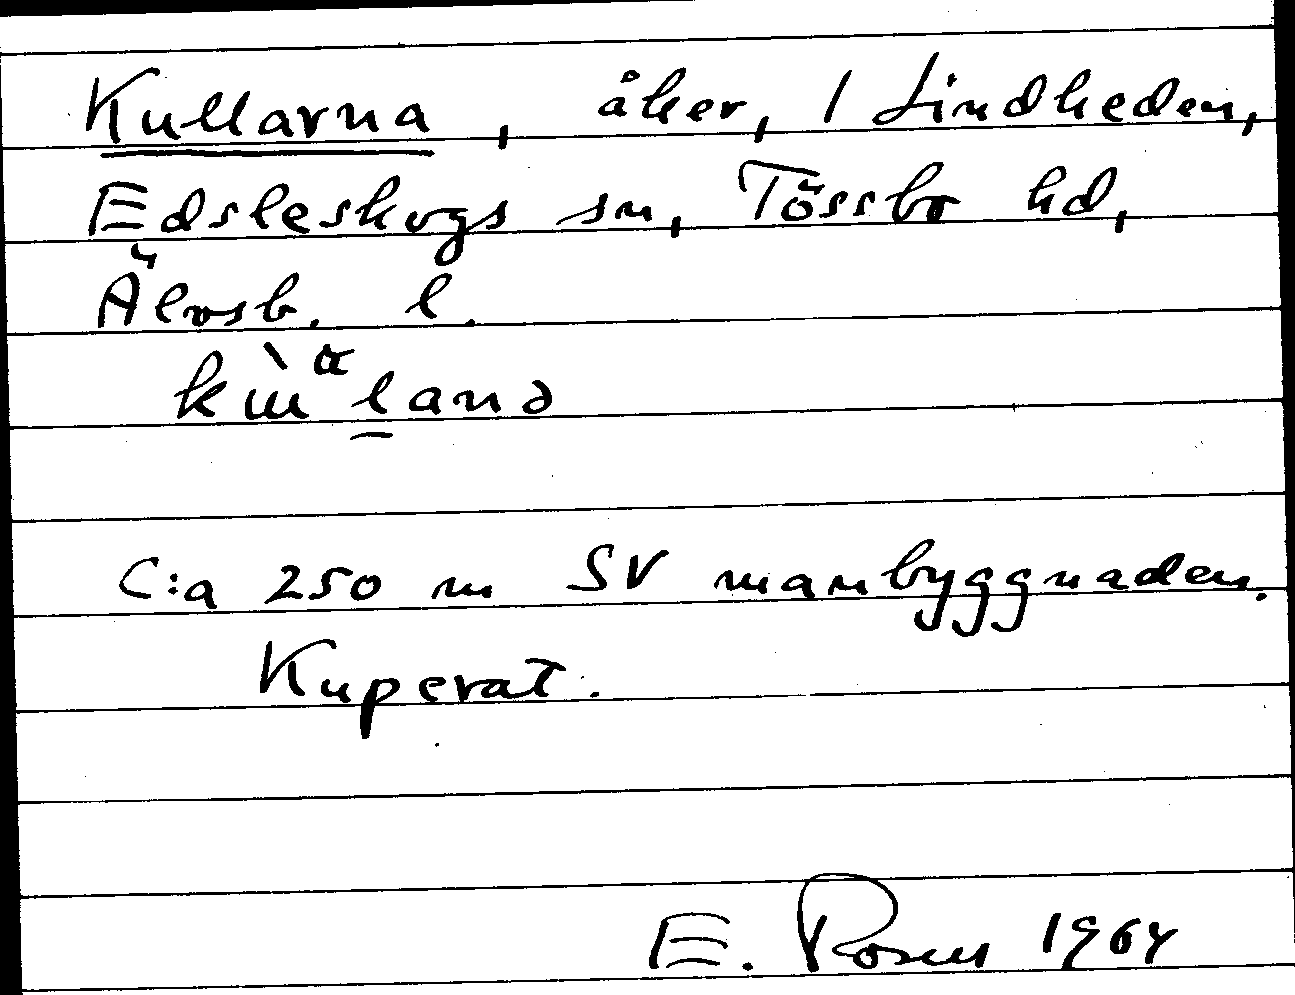 Kullarna, åker, 1 Lindheden,
Edsleskogs sn, Tössbo hd,
Älvsb. l.
C:a 250 m SV manbyggnaden.
Kuperat.
E. Rosen 1964